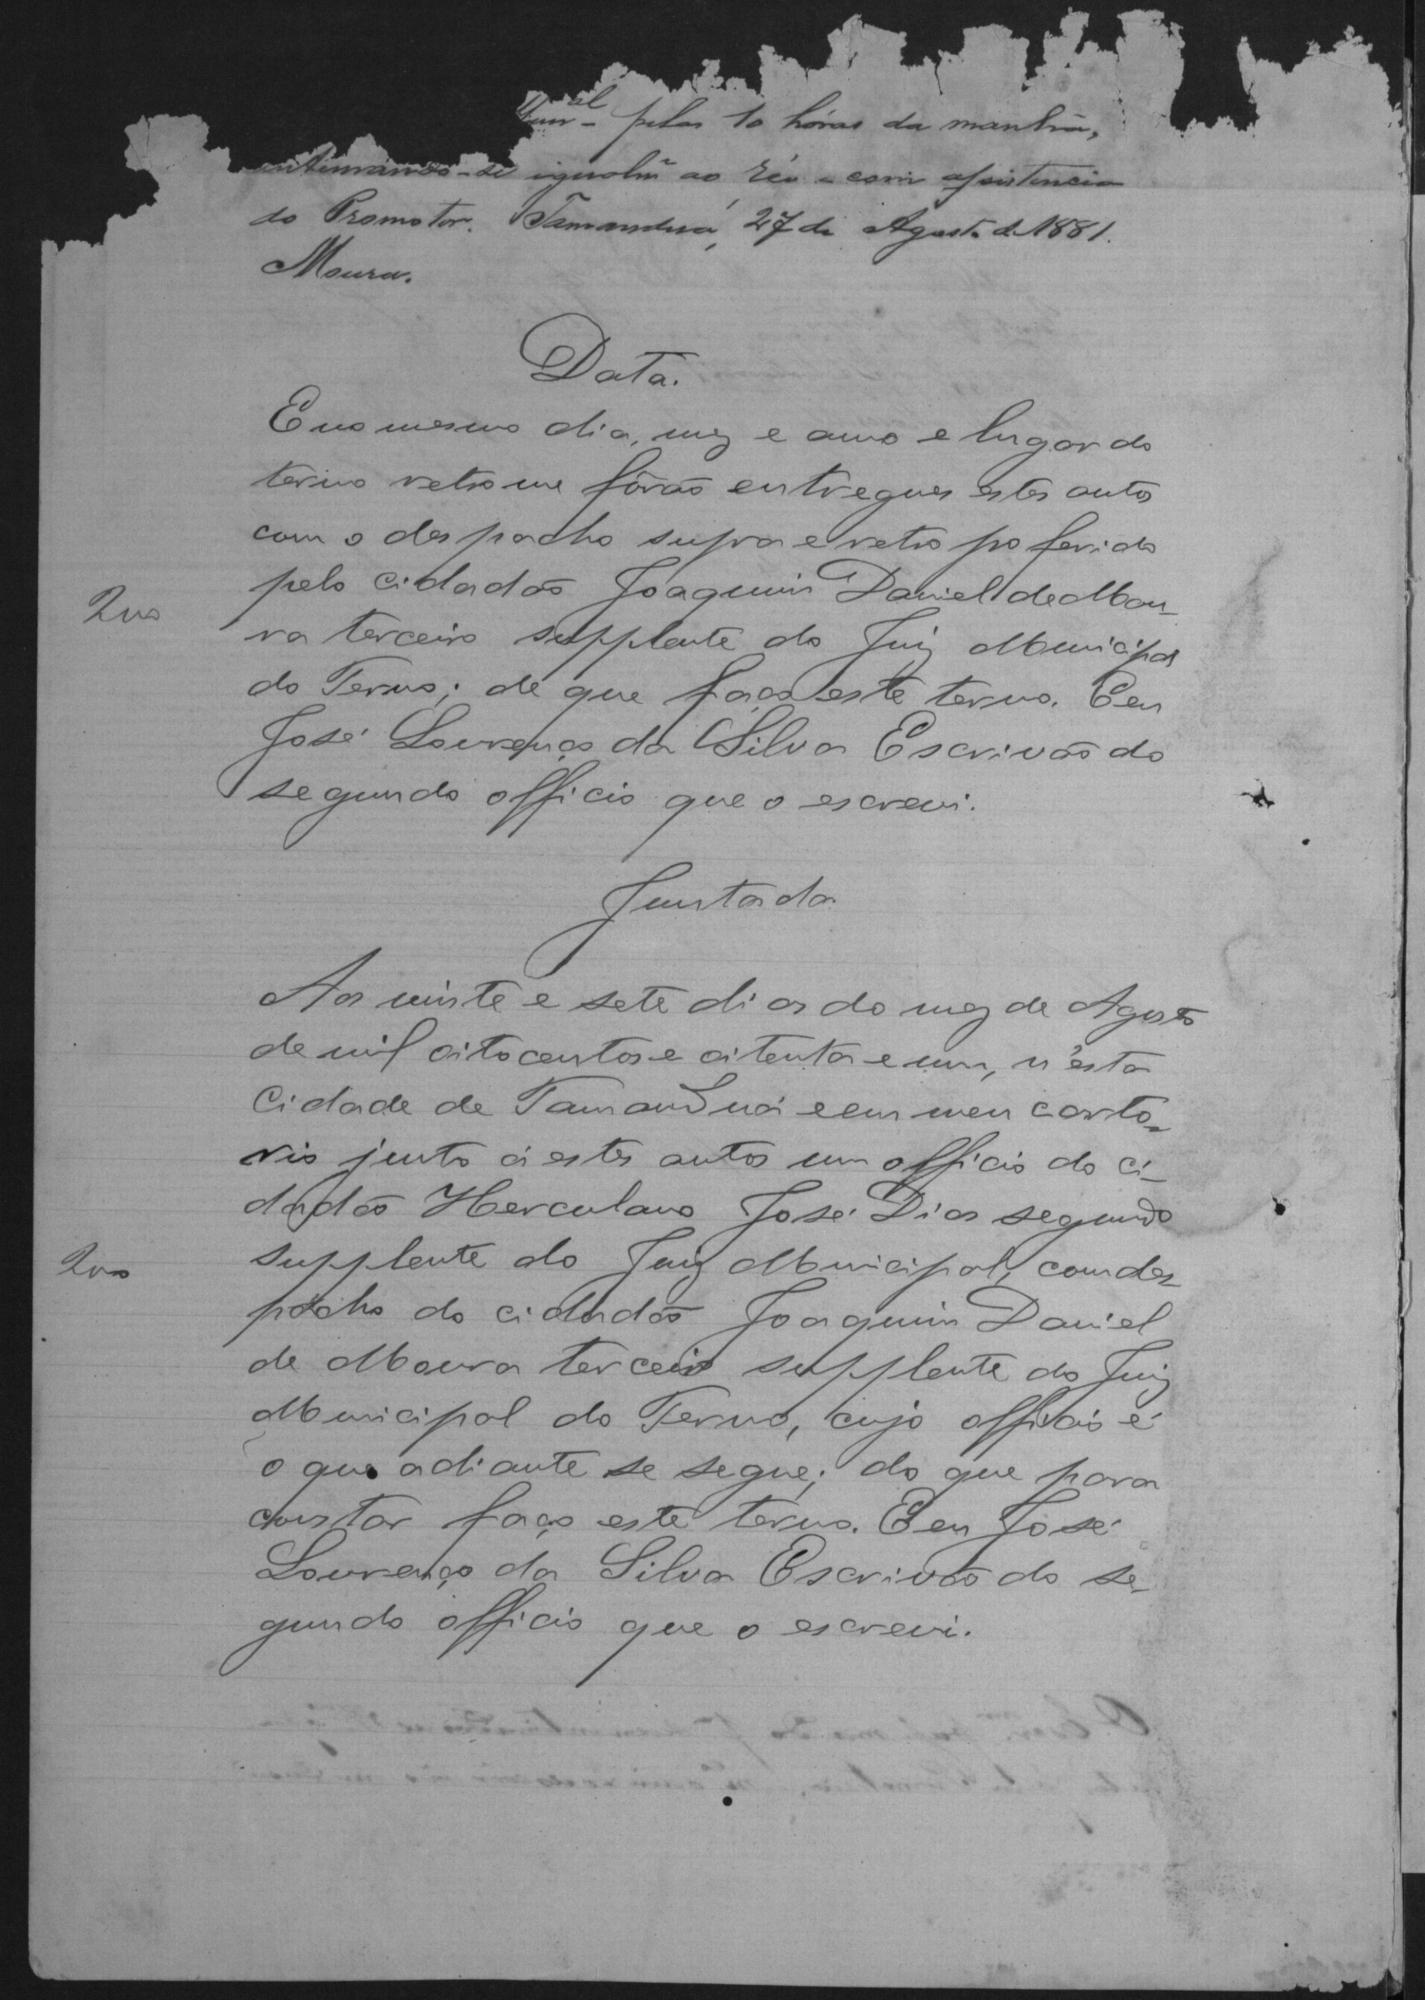 pelas 10 horas da manhã,
intimando-se igualm.e ao réo e com assistencia
do Promotor. Tamanduá, 27 de Agosto de 1881.
Moura.
Data.
E no mesmo dia, mez e anno e lugar do
termo retro me fôrão entregues estes autos
com o despacho supra e retro proferido
pelo cidadão Joaquim Daniel de Mou-
ra terceiro supplente do Juiz Municipal
do Termo; de que faço este termo. E eu
José Lourenço da Silva Escrivão do
segundo officio que o escrevi.
Juntada
Aos vinte e sete dias do mez de Agosto
de mil oitocentos e oitenta e um, n'esta
Cidade de Tamanduá e em meu carto-
rio junto á estes autos um officio do ci-
dadão Herculano José Dias segundo
supplente do Juiz Municipal, com des-
pacho do cidadão Joaquim Daniel
de Moura terceiro supplente do Juiz
Municipal do Termo, cujo officio é
o que adiante se segue; do que para
constar faço este termo. E eu José
Lourenço da Silva Escrivão do se-
gundo officio que o escrevi.